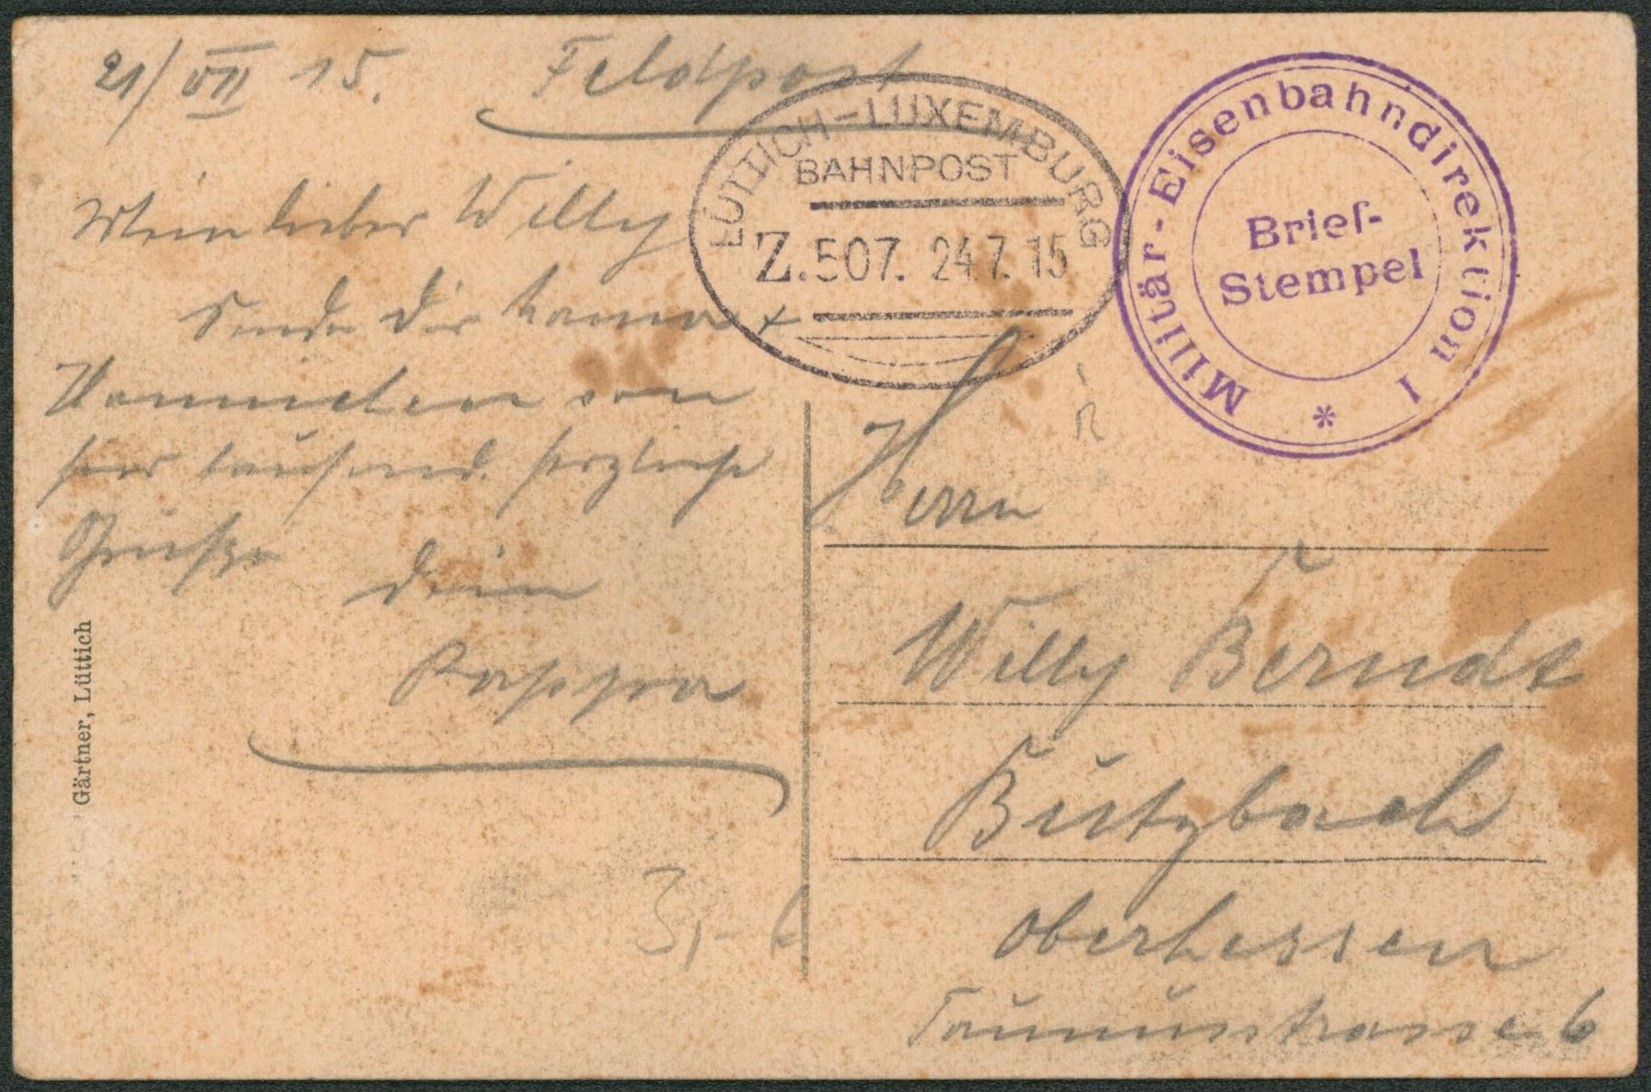 21/VII 15. Feldpost
LÜTTICH-LUXEMBURG
BAHNPOST
Z.507. 24 7. 15
Militär-Eisenbahndirektion I
*
Brief-
Stempel
Mein lieber Willy
Sende Dir
von
hier tausend herzliche
Grüße Dein
Pappa
Gärtner, Lüttich
Herrn
Willy Berndt
Butzbach
Oberhessen
Taunusstrasse 6
3,-